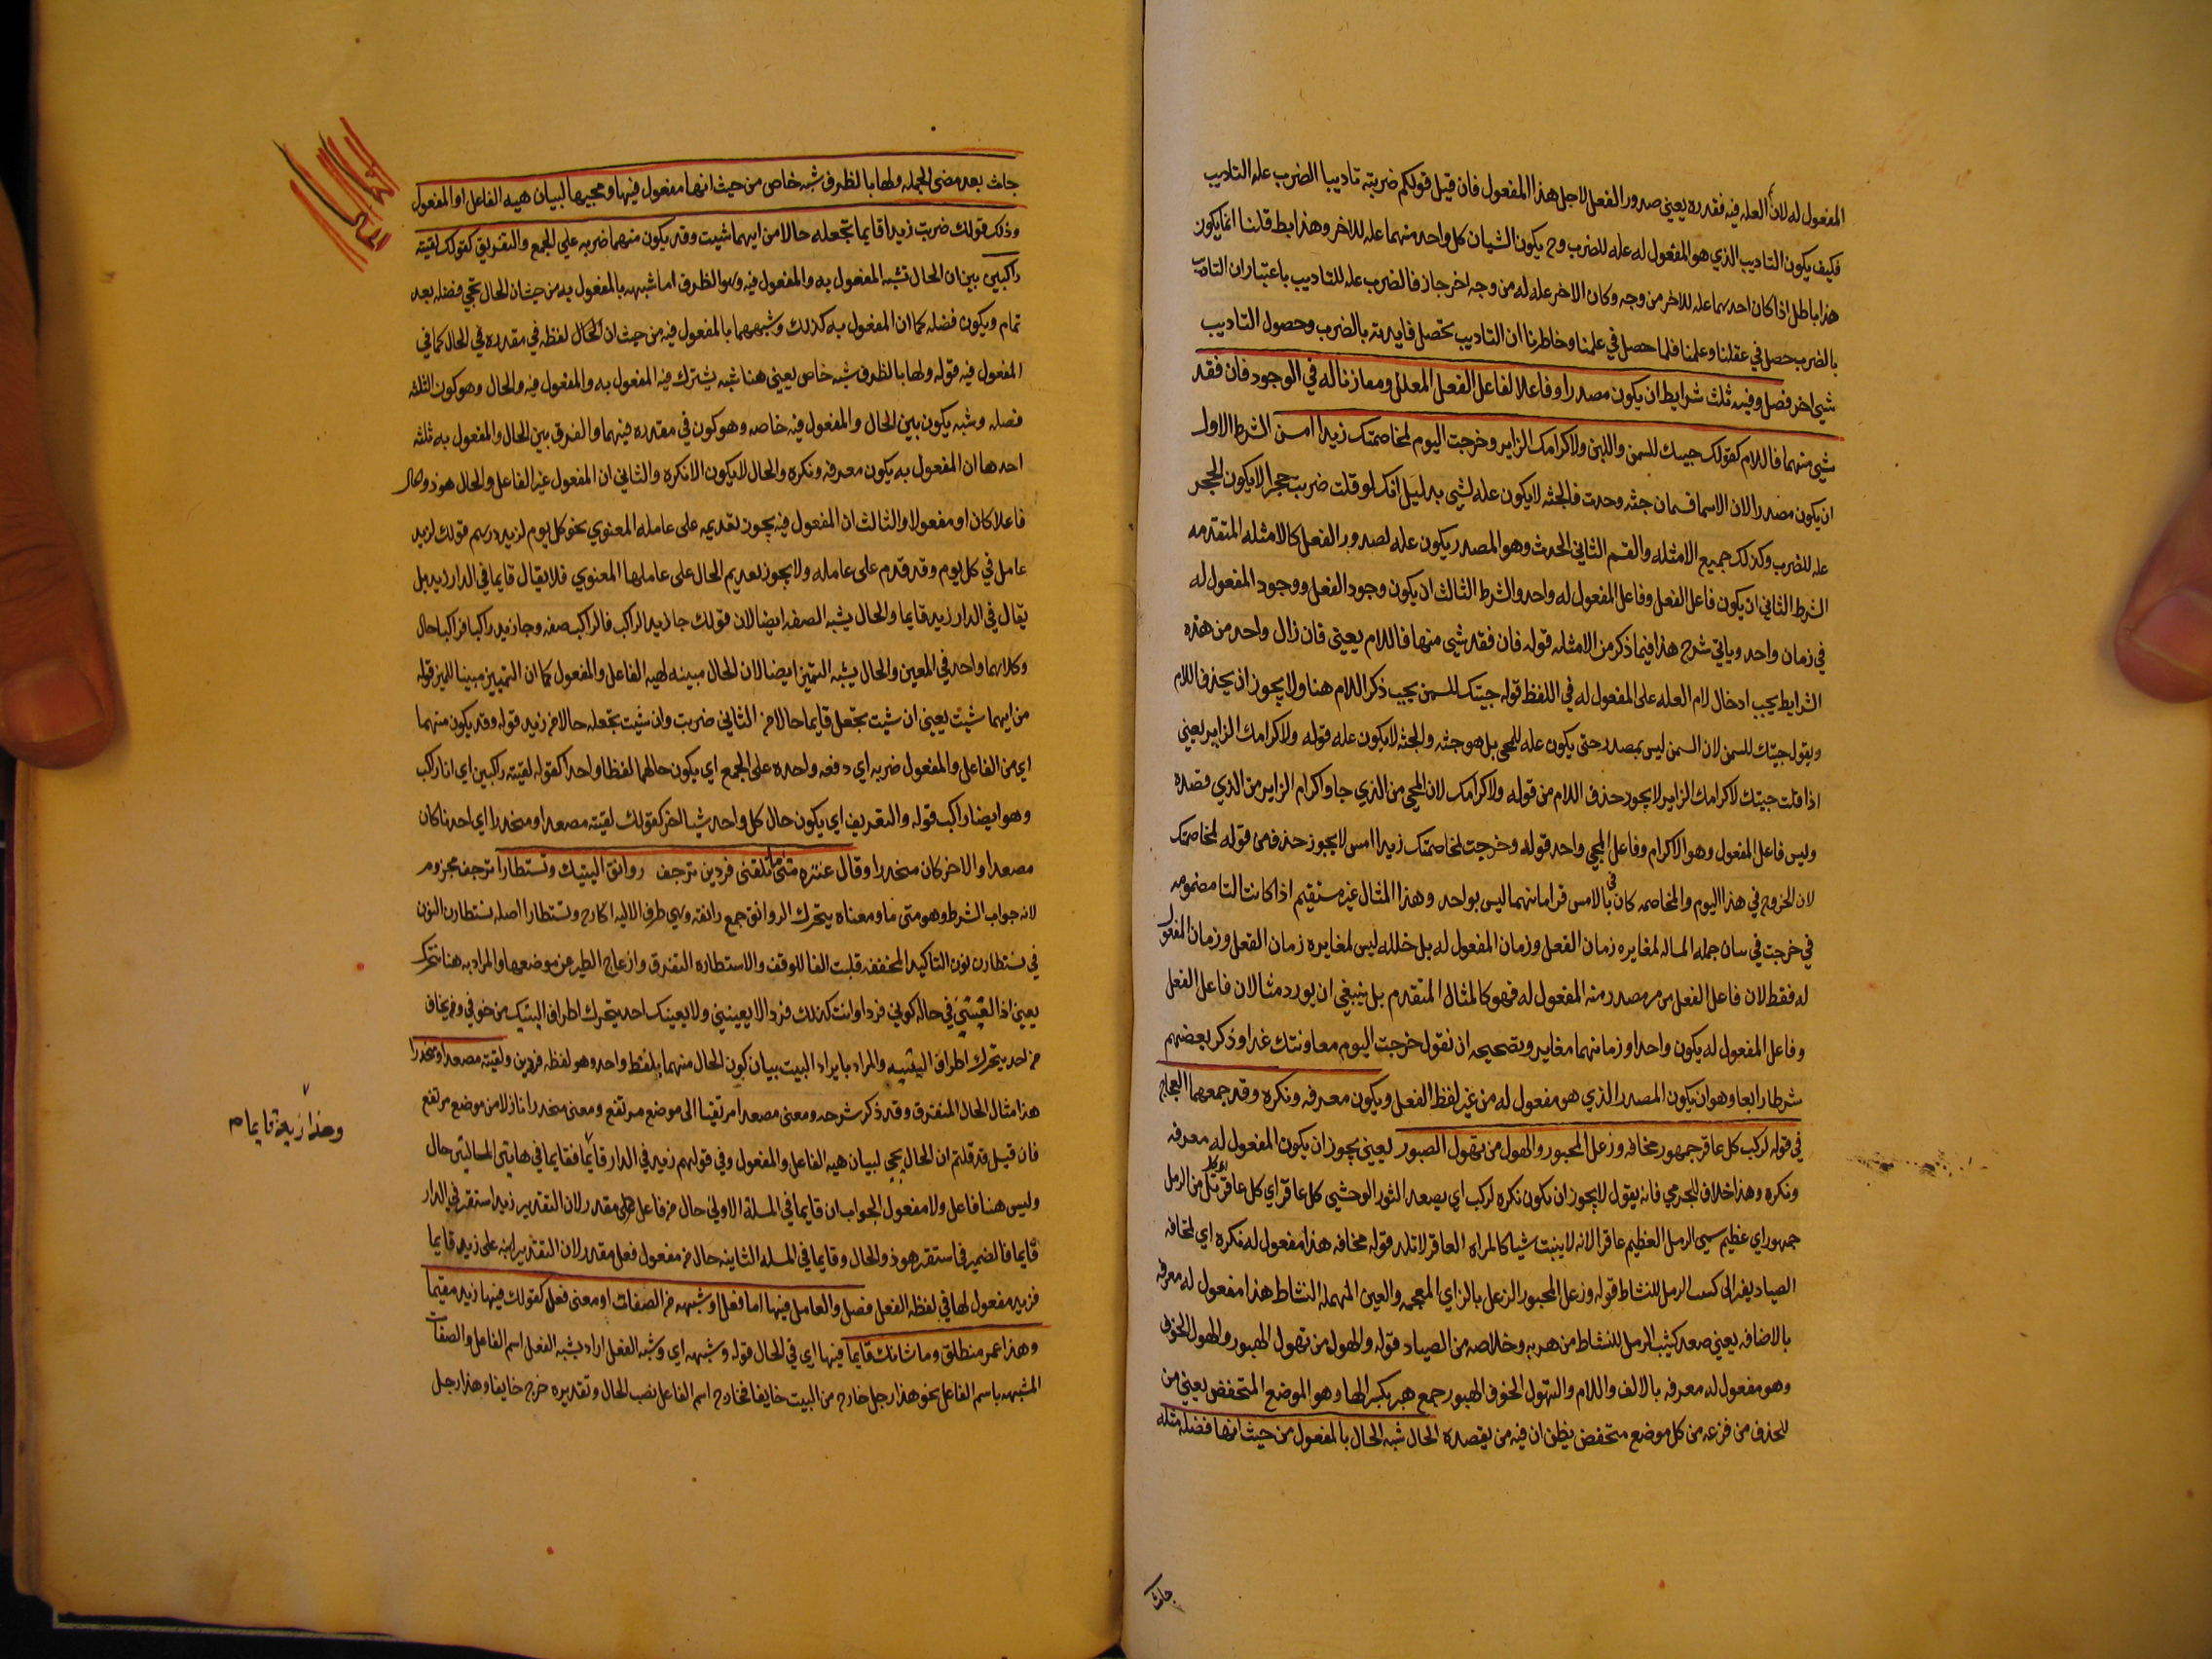 المفعول له لان العله فيه فقدره يعني صدور الفعل لاجل هذا المفعول فان قيل قولكم ضربته تاديبا الضرب عله التاديب
فكيف يكون التاديب الذي هو المفعول له عله للضرب وح يكون الشيان كل واحد منهما عله للاخر وهذا بط قلنا انما يكون
هذا باطل اذا كان احدهما عله للاخر من وجه وكان الاخر عله له من وجه اخر جاز فالضرب عله للتاديب باعتبار ان التاديب
بالضرب حصل في عقلنا وعلمنا فلما حصل في علمنا وخاطرنا ان التاديب تحصل فايدته بالضرب وحصول التاديب
شي اخر فصل وفيه ثلث شرايط ان يكون مصدرا وفاعلا لفاعل الفعل المعلل ومقارنا له في الوجود فان فقد
شي منهما فاللام كقولك جيتك للسمن واللبن ولاكرامك الزاير وخرجت اليوم لمخاصمتك زيدا امس الشرط الاول
ان يكون مصدرا لان الاسما قسمان جثه وحدث فالجثه لا يكون عله لشي بدليل انك لو قلت ضربت حجرا لا يكون الحجر
عله للضرب وكذلك جميع الامثله والقسم الثاني الحدث وهو المصدر يكون عله لصدور الفعل كالامثله المتقدمه
الشرط الثاني ان يكون فاعل الفعل وفاعل المفعول له واحد والشرط الثالث ان يكون وجود الفعل ووجود المفعول له
في زمان واحد وياتي شرح هذا فيما ذكر من الامثله قوله فان فقد شي منها فاللام يعني فان زال واحد من هذه
الشرايط يجب ادخال لام العله على المفعول له في اللفظ قوله جيتك للسمن يجب ذكر اللام هنا ولا يجوز ان يحذف اللام
ويقول جيتك للسمن لان السمن ليس بمصدر حتى يكون عله للمجي بل هو جثه والجثه لا يكون عله قوله ولاكرامك الزاير يعني
اذا قلت جيتك لاكرامك الزاير لا يجوز حذف اللام من قوله ولاكرامك لان المجي من الذي جا واكرام الزاير من الذي قصده
وليس فاعل المفعول وهو الاكرام وفاعل المجي واحد قوله وخرجت لمخاصمتك زيدا امس لا يجوز حذف من قوله لمخاصمتك
لان الخروج في هذا اليوم والمخاصمه كان في بالامس فزمانهما ليس بواحد وهذا المثال غير مستقيم اذا كانت التا مضمومه
في خرجت في سان جمله المساله لمغايره زمان الفعل وزمان المفعول له بل خلله ليس لمغايره زمان الفعل وزمان المفعول
له فقط لان فاعل الفعل من مصدر منه المفعول له فهو كالمثال المتقدم بل ينبغي ان يورد مثالا لان فاعل الفعل
وفاعل المفعول له يكون واحدا وزمانهما مغاير وتصحيحه ان نقول خرجت اليوم معاونتك غدا وذكر بعضهم
شرطا رابعا وهو ان يكون المصدر الذي هو مفعول له من غير لفظ الفعل ويكون معرفه ونكره وقد جمعهما العجاج
في قوله لركب كل عاقر جمهور مخافه وزعل المحبور والهول من تهول الهبور يعني يجوز ان يكون المفعول له معرفه
ونكره وهذا خلاف للجرمي فانه يقول لا يجوز ان يكون نكره لركب اي يصعد الثور الوحشي كل عاقر اي كل عاقر تل من الرمل
جمهور اي عظيم سمي الرمل العظيم عاقرا لانه لا ينبت شيا كالمراه العاقر لا تلد قوله مخافه هذا مفعول له نكره اي لمخافه
الصياد يفر الى كسب الرمل للنشاط قوله وزعل المحبور الزعل بالزاي المعجمه والعين المهمله النشاط هذا مفعول له معرفه
بالاضافه يعني صعد كثيب الرمل للنشاط من هربه وخلاصه من الصياد قوله والهول من تهول الهبور والهول الخوف
وهو مفعول له معرفه بالالف واللام والتهول الخوف الهبور جمع هبر بكسر الها وهو الموضع المنخفض يعني من
للحذف من فزعه من كل موضع منخفض يظن ان فيه من يقصده الحال شبه الحال بالمفعول من حيث انها فضله مثله
جات
جات بعد مضي الجمله ولها بالظرف شبه خاص من حيث انها مفعول فيها ومجيها لبيان هيه الفاعل او المفعول
وذلك قولك ضربت زيدا قايما تجعله حالا من ايهما شيت وقد يكون منهما ضربه على الجمع والتفريق كقولك لقيته
راكبين بين ان الحال تشبه المفعول به والمفعول فيه وهو الظرف اما شبهه بالمفعول به من حيث ان الحال تجي فضله بعد
تمام ويكون فضله كما ان المفعول به كذلك وشبهها بالمفعول فيه من حيث ان الحال لفظه في مقدره في الحال كما في
المفعول فيه قوله ولها بالظرف شبه خاص يعني هنا شبه يشترك فيه المفعول به والمفعول فيه والحال وهو كون الثلثه
فضله وشبه يكون بين الحال والمفعول فيه خاصه وهو كون في مقدره فيهما والفرق بين الحال والمفعول به ثلثه
احدها ان المفعول به يكون معرفه ونكره والحال لا يكون الا نكره والثاني ان المفعول غير الفاعل والحال هو ذو الحال
فاعلا كان او مفعولا والثالث ان المفعول فيه يجوز تقديمه على عامله المعنوي نحو كل يوم لزيد درهم قولك لزيد
عامل في كل يوم وقد قدم على عامله ولا يجوز تقديم الحال على عاملها المعنوي فلا يقال قايما في الدار زيد بل
يقال في الدار زيد قايما والحال يشبه الصفه ايضا لان قولك جا زيد الراكب فالراكب صفه وجا زيد راكبا فراكبا حال
وكلاهما واحد في المعين والحال يشبه التميز ايضا لان الحال مبينه لهيه الفاعل والمفعول كما ان التمييز مبينا للميز قوله
من ايهما شيت يعني ان شيت تجعل قايما حالا من التا في ضربت وان شيت تجعله حالا من زيد قوله وقد يكون منهما
اي من الفاعل والمفعول ضربه اي دفعه واحده على الجمع اي يكون حالهما لفظا واحدا كقوله لقيته راكبين اي انا راكب
وهو ايضا راكب قوله والتفريق اي يكون حال كل واحد شيا اخر كقولك لقيته مصعدا ومنحدرا اي احدنا كان
مصعدا والاخر كان منحدرا وقال عنتره متى ما تلقني فردين ترجف روانق اليتيك وتستطارا ترجف مجزوم
لانه جواب الشرط وهو متى ما ومعناه يتحرك الروانق جمع رانقه وهي طرف الاليه اكارح وتستطارا اصله تستطارن النون
في تستطارن نون التاكيد المخففه قلبت الفا للوقف والاستطاره التفرق وازعاج الطير من موضعها والمراد به هنا تتحرك
يعني اذا لقيتني في حاله كوني فردا وانت كذلك فردا لا يعينني ولا يعينك احد يتحرك اطراف اليتيك من خوفي ومن يخاف
من احد يتحرك اطراف اليتيه والمراد بايراد البيت بيان كون الحال منهما بلفظ واحد وهو لفظه فردين ولقيته مصعدا ومنحدرا
هذا مثال الحال المتفرق وقد ذكر شرحه ومعنى مصعدا مرتقيا الى موضع مرتفع ومعنى منحدرا نازلا من موضع مرتفع
فان قيل قد قلتم ان الحال يجي لبيان هيه الفاعل والمفعول وفي قولهم زيد في الدار قايما فقايما في هاتين المسالتين حال
وليس هنا فاعل ولا مفعول الجواب ان قايما في المسلة الاولى حال من فاعل فعل مقدر لان التقدير زيد استقر في الدار
قايما فالضمير في استقر هو ذو الحال وقايما في المسله الثانيه حال من مفعول فعل مقدر لان التقدير انبه على زيد قايما
فزيد مفعول لها في لفظه الفعل فصل والعامل فيها اما فعل او شبهه من الصفات او معنى فعل كقولك فيها زيد مقيما
وهذا عمر منطلق وما شانك قايما فيها اي في الحال قوله وشبهه اي وشبه الفعل اراد بشبه الفعل اسم الفاعل والصفات
المشبهه باسم الفاعل نحو هذا رجل خارج من البيت خايفا فخارج اسم الفاعل نصب الحال وتقديره خرج خايفا وهذا رجل
الحال
وهذا زيد قايما م